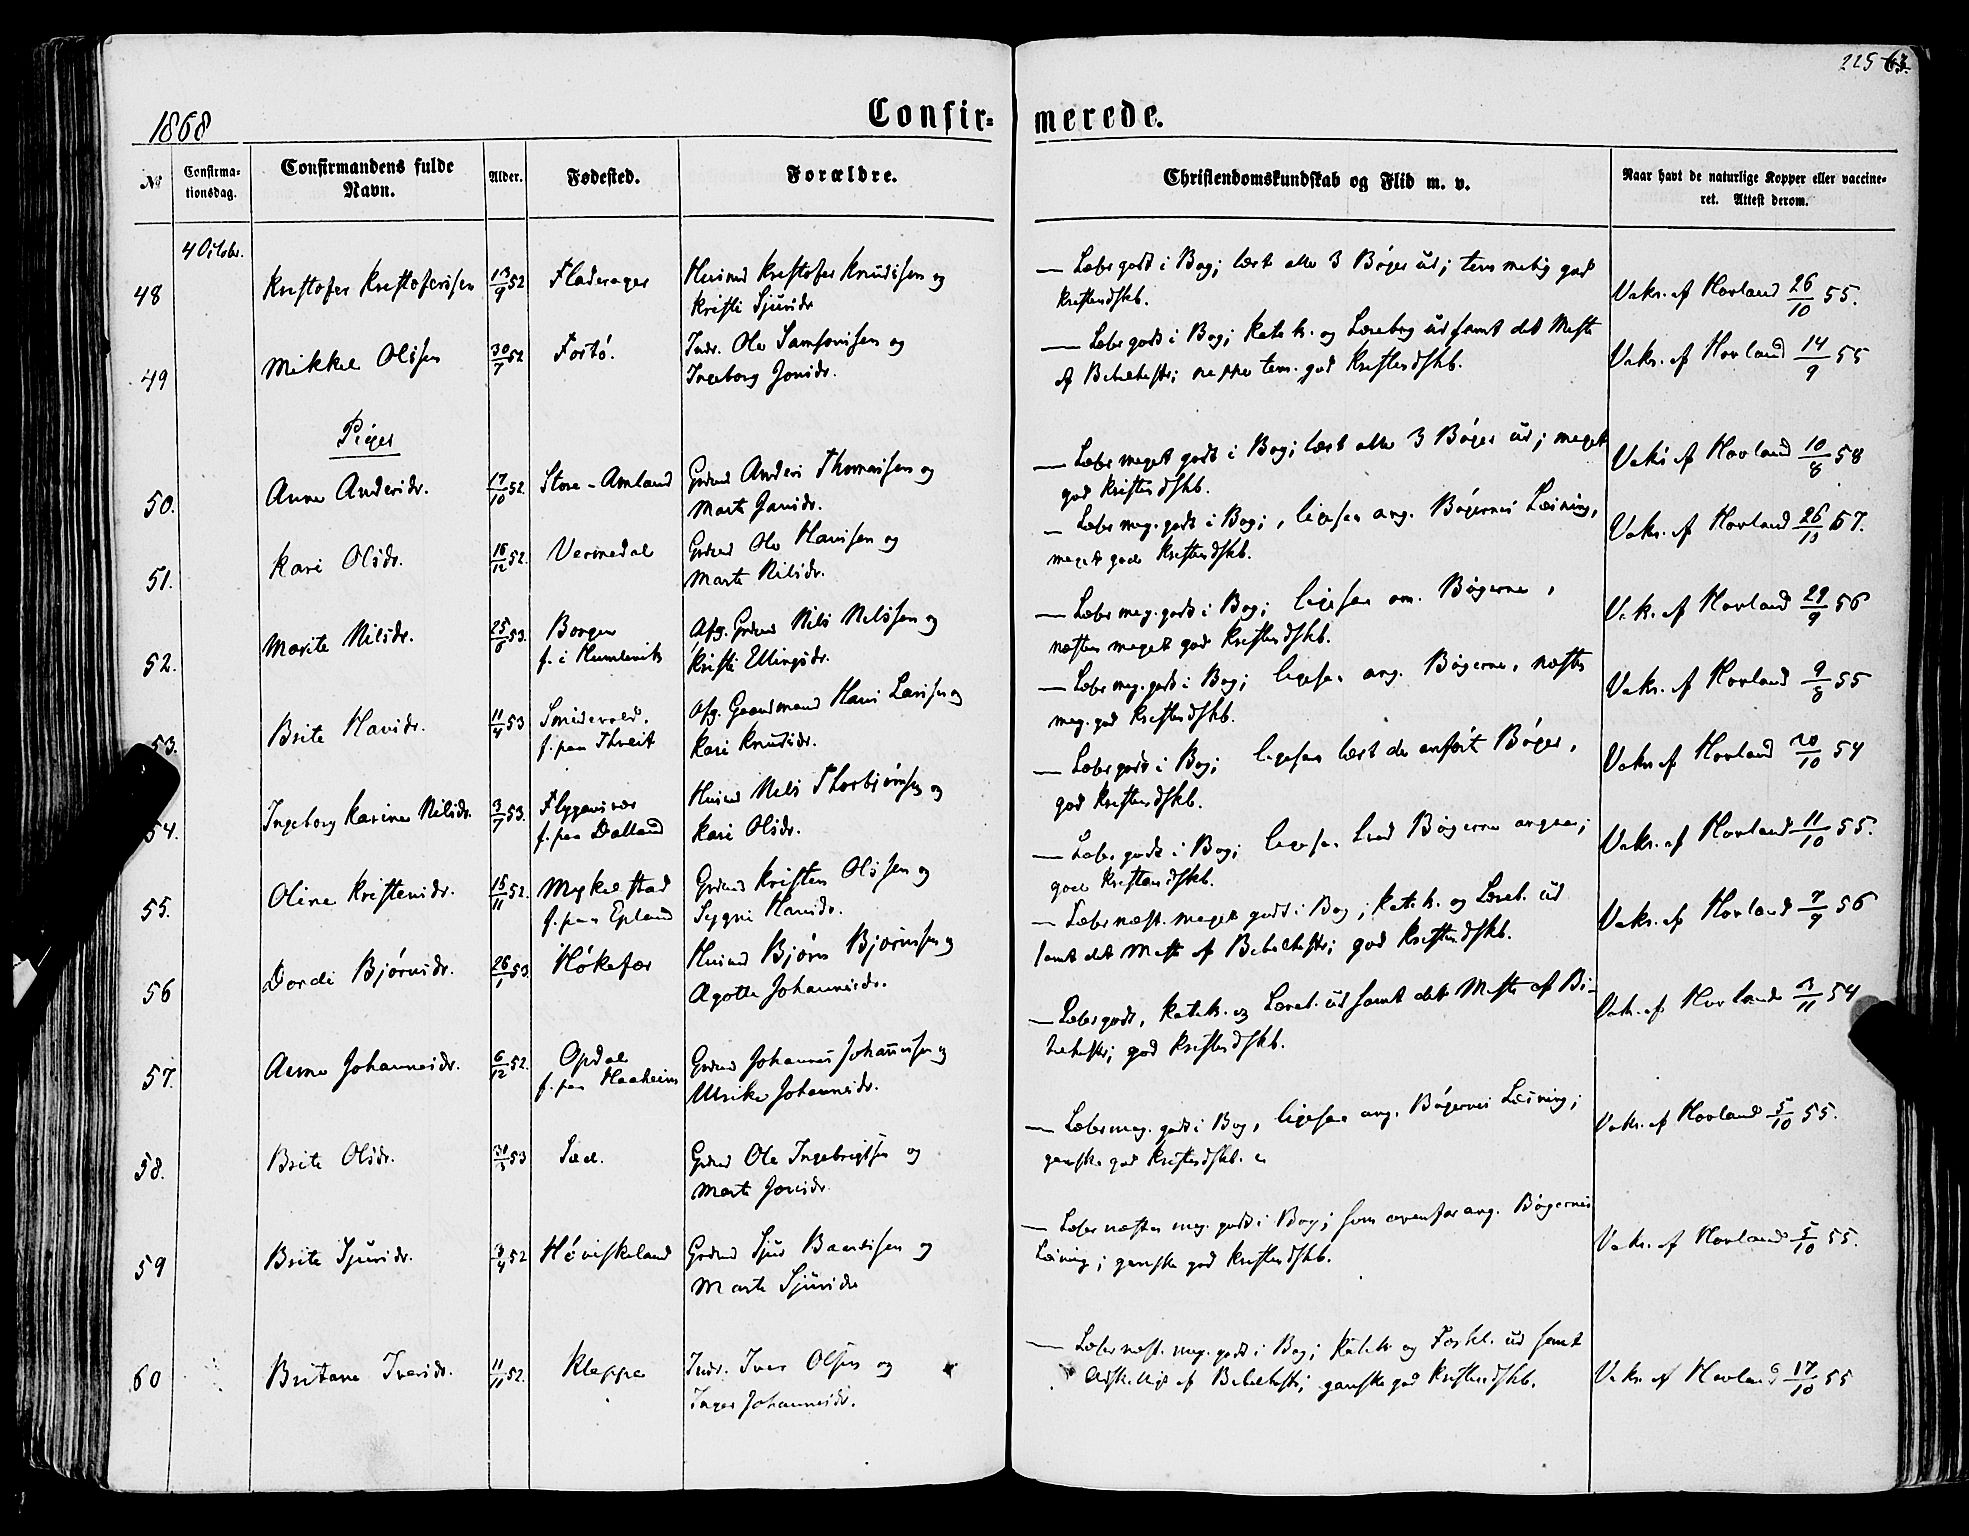 225
63.
1868
Confir=
merede.
No
Confirma-
tionsdag.
Confirmandens fulde
Navn.
Alder.
Fødested.
Forældre.
Christendomskundskab og Flid m. v.
Naar havt de naturlige Kopper eller vaccine-
ret. Attest derom.
4 Octobr.
48 Kristofer Kristofersen 13/9 52 Fladerager Husmd Kristofer Knudsen og
Kristi Sjursdr
— Læser godt i Bog; læst alle 3 Bøger ud; tem. metig god
Kristendskb.
Vaks. af Hovland 26/10 55.
49 Mikkel Olsen 30/7 52 Fostø. Indr. Ole Samsonsen og
Ingeborg Jonsdr.
— Læser godt i Bog; Katek. og Lærebog ud samt det Meste
af Bibelhistr; neppe tem. god Kristendskb.
Vaks. af Hovland 14/9 55
Piger
50. Anna Andersdr. 17/10 52. Store-Amland Grdmd Anders Thomassen og
Marta Jansdr.
— Læser meget godt i Bog; læst alle 3 Bøger ud; meget
god Kristendskb.
Vaks af Hovland 10/8 58
51. Kari Olsdr. 16/12 52. Vermedal Grdmd Ole Hansen og
Marta Nilsdr.
— Læser meg. godt i Bog; ligesaa ang. Bøgernes Læsning,
meget god Kristendskb.
Vaks. af Hovland 26/10 57.
52. Marite Nilsdr. 25/8 53. Borgen
f. i Humlevik
Afg. Grdmd Nils Nilssen og
Kristi Ellingsdr.
— Læser meg. godt i Bog; ligesaa om Bøgerne,
næsten meget god Kristendskb.
Vak. af Hovland 29/9 56
53. Brite Hansdr. 11/4 53 Smidevold.
f. paa Thveit
Afg. Gaardmand Hans Larsen og
Kari Knudsdr.
— Læser meg. godt i Bog; ligesaa ang. Bøgerne, næsten
meg. god Kristendskb.
Vaks. af Hovland 9/8 55
54. Ingeborg Karina Nilsdr. 3/7 53. Flygansvær
f. paa Dalland
Husmd Nils Thorbjørnsen og
Kari Olsdr.
— Læser godt i Bog; ligesaa læst de anførte Bøger,
god Kristendskb.
Vaks af Hovland 20/10 54
55. Oline Kristensdr. 15/11 52. Mykelstad
f. paa Epland
Grdmd Kristen Olsen og
Sygni Hansdr.
— Læser godt i Bog; ligesaa hvad Bøgerne angaar;
god Kristendskb.
Vaks. af Hovland 11/10 55.
56 Dorde Bjørnsdr. 26/1 53. Høkefær Husmd Bjørn Bjørnsen og
Agotta Johannesdr.
— Læser næst. meget godt i Bog; Katek. og Læreb. ud
samt det Meste af Bibelhistr; god Kristendskb.
Vaks. af Hovland 7/9 56
57. Anna Johannesdr. 6/12 52. Opdal
f. paa Haaheim
Grdmd Johannes Johannessen og
Ulrika Johannesdr.
— Læser godt, Katek. og Læreb. ud samt det Meste af Bi-
belhistr; god Kristendskb.
Vak. af Hovland 3/11 54
58. Brite Olsdr. 31/3 53 Sæd. Grdmd Ole Ingebrigtsen og
Marta Jonsdr.
— Læser meg. godt i Bog, ligesaa ang. Bøgernes Læsning;
ganske god Kristendskb.
Vaks. af Hovland 5/10 55.
59 Brite Sjursdr. 3/4 52 Høviskeland Grdmd Sjur Baardsen og
Marta Sjursdr
— Læser næsten meg. godt i Bog; som ovenfor ang. Bøgernes
Læsning; ganske god Kristendskb.
Vaks. af Hovland 5/10 55.
60 Britana Iversdr. 11/11 52. Kleppe Indr. Iver Olsen og
Inger Johannesdr.
— Læser næst. meg. godt i Bog; Katek og Forkl. ud samt
Adskilligt af Bibelhistr; ganske god Kristendskb.
Vaks af Hovland 17/10 55